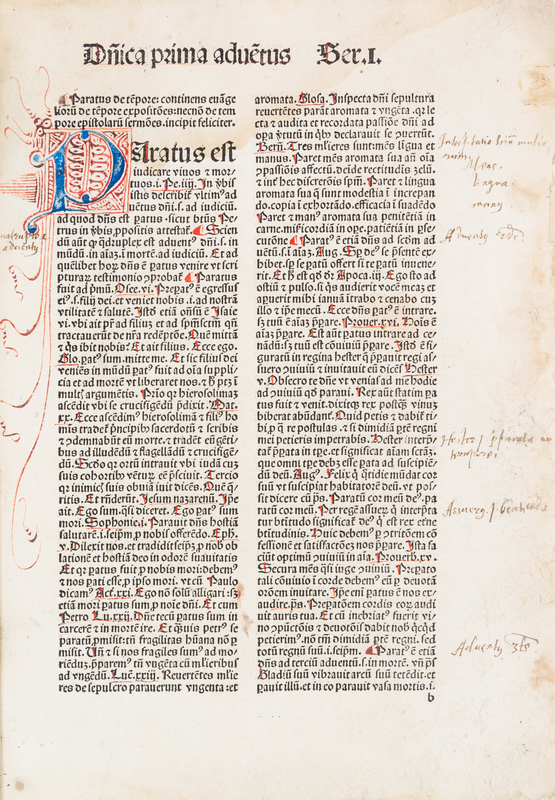 Dñica prima aduẽtus Ser.I.
¶ Paratus de tẽpore: continens euãge
liorũ de tẽpore expositões: necnõ de tem
pore epistolarũ sermões. incipit feliciter.
PAratus est
iudicare viuos ⁊ mor⸗
tuos. i. Pe. iiij. In v̾bis
istis describit̃ vltim⁹ ad
uẽtus dñi. s. ad iudiciũ.
ad quod dñs est patus. sicut btũs Pe⸗
trus in v̾bis ꝓpositis attestat̃. ¶ Scien
dũ aũt ꝙ q̃druplex est aduent⁹ dñi. s. in
mũdũ. in aĩaz. i mortẽ. ad iudiciũ. Et ad
quẽlibet hoꝝ dñs ẽ patus venire vt scri
pturaꝝ testimonio ꝓbat̃. ¶ Paratus
fuit ad pͥmũ. Osee. vi. Prepat⁹ ẽ egressus
ei⁹. s. filij dei. et veniet nobis. i. ad nostrã
vtilitatẽ ⁊ salutẽ. Istð etiã oñsũ ẽ Isaie
vi. vbi ait pr̃ ad filiuz ⁊ ad spm̃sctm̃ qñ
tractauerũt de nr̃a redẽptiõe. Quẽ mittã
⁊ q̃s ibit nobis: Et ait filius. Ecce ego.
Glo. pat⁹ sum. mitte me. Et sic filius dei
veniẽs in mũdũ pat⁹ fuit ad oĩa suppli⸗
cia et ad mortẽ vt liberaret nos. ⁊ h̾ ptꝫ ĩ
mult̃ argumẽtis. Prĩo qꝛ hierosolimaz
ascẽdit vbi se crucifigẽdũ p̃dixit. Mat.
xx. Ecce ascẽdim⁹ hierosolimã ⁊ fili⁹ ho⸗
mis tradet̃ p̃ncipib⁹ sacerdotũ ⁊ scribis
⁊ ꝯdemnabũt eũ morte. ⁊ tradẽt eũ gẽti⸗
bus ad illudẽdũ ⁊ flagellãdũ ⁊ crucifigẽ⸗
dũ. Scðo qꝛ ortũ intrauit vbi iudã cuz
suis cohortib⁹ vẽtuꝝ eẽ p̃sciuit. Tercio
qꝛ inimic̃ suis obuiã iuit dicẽs. Quẽ q̃⸗
ritis. Et rñderũt. Jesum nazarenũ. Ip̃e
ait. Ego sum. q̃si diceret. Ego pat⁹ sum
mori. Sophonie. i. Parauit dñs hostiã
salutarẽ. i. seip̃m. ꝓ nobis offerẽdo. Eph.
v. Dilexit nos. et tradidit seip̃z ꝓ nob ob
lationẽ et hostiã deo in odorẽ suauitatis
Et qꝛ patus fuit ꝓ nobis mori: debem⁹
⁊ nos pati esse. ꝓ ip̃so mori. vt cũ Paulo
dicam⁹ Act. xxi. Ego nõ solũ alligari: sꝫ
etiã mori patus sum. ꝓ noĩe dñi. Et cum
Petro Lu. xxij. Dñe tecũ patus sum in
carcerẽ ⁊ in mortẽ ire. Et q̃uis petr⁹ se
paratũ ꝓmisit: tñ fragilitas hũana nõ ꝑ
misit. Vñ ⁊ si nos fragiles sum⁹ ad mo⸗
riẽduꝫ. ꝑparem⁹ tñ vngẽta cũ ml̃ieribus
ad vngẽdũ. Luẽ. xxiij. Reuertẽtes ml̃ie
res de sepulcro parauerunt vngenta: et
aromata. Glosa. Inspecta dñi sepultura
reuertẽtes parãt aromata ⁊ vngẽta. qꝛ le
cta ⁊ audita et recordata passiõe dñi. ad
opa ꝟtutũ in q̃b⁹ declarauit se ꝯuertũt.
Bern̾. Tres ml̃ieres sunt: mẽs lĩgua et
manus. Paret mẽs aromata sua añ oĩa
ꝯpassiõis affectũ. deĩde rectitudĩs zelũ.
⁊ int̾ hec discretiõis spm̃. Paret ⁊ lingua
aromata sua q̃ sunt modestia ĩ increpan
do. copia ĩ exhortãdo. efficacia ĩ suadẽdo
Paret ⁊ man⁹ aromata sua peñitẽtiã in
carne. mĩcordiã in ope. patiẽtiã in pse⸗
cutõne ¶ Parat⁹ ẽ etiã dñs ad scðm ad
uẽtũ. s. ĩ aĩaz. Aug. Sp̃ de⁹ se p̃sentẽ ex⸗
hibet. sp̃ se patũ offert si te patũ inuene⸗
rit. Et h̾ est qð dr̃ Apoca. iij. Ego sto ad
ostiũ ⁊ pulso. si q̃s audierit vocẽ meaꝫ et
apuerit mihi ianuã ĩtrabo ⁊ cenabo cuꝫ
illo ⁊ ip̃e mecũ. Ecce dñs pat⁹ ẽ intrare.
sꝫ tuũ ẽ aĩaz p̃pare. Prouer. xvi. Hoĩs ẽ
aĩaz p̃pare. Est aũt patus intrare ad ce⸗
nãdũ: sꝫ tuũ est cõuiuiũ p̃pare. Istð ẽ fi⸗
guratũ in regina hester q̃ p̃pauit regi as
suero ꝯuiuiũ ⁊ inuitauit eũ dicẽs Hester
v. Obsecro te dñe vt venias ad me hodie
ad ꝯuiuiũ qð paraui. Rex aũt statim pa
tus fuit ⁊ venit. dixitqꝫ rex postq̃ꝫ vinuꝫ
biberat abũdant̾. Quid petis ⁊ dabit̃ ti⸗
bi. ꝓ q̃ re postulas. ⁊ si dimidiã ptẽ regni
mei petieris impetrabis. Hester interp̃⸗
tat̃ p̃pata in tp̃e. et significat aĩam sctãꝫ.
que omni tp̃e debꝫ esse pata ad suscipiẽ⸗
dũ deũ. Aug⁹. Felix q̃ q̃tidie mũdat cor
suũ vt suscipiat habitatorẽ deũ. vt pos⸗
sit dicere cũ ꝓ̃s. Paratũ cor meũ de⁹. pa
ratũ cor meũ. Per regẽ assueꝝ q̃ interp̃ta
tur btĩtudo significat̃ de⁹ q̃ est rex et̾ne
btĩtudinis. Huic debem⁹ ꝑ ꝯtritõem cõ
fessionẽ et satisfactõeꝫ nos p̃pare. Ista fa
ciũt optimũ ꝯuiuiũ in aĩa. Prouerb. xv.
Secura mẽs q̃si iuge ꝯuiuiũ. Prepato
tali cõuiuio ĩ corde debem⁹ eũ ꝑ deuotã
orõem inuitare. Ip̃e eni patus ẽ nos ex⸗
audire. ꝓ̃s. Prepatõem cordis eoꝝ audi
uit auris tua. Et cũ inebriat⁹ fuerit vi⸗
no ꝯpũctõis ⁊ deuotõis dabit nob q̃cq̃d
petierim⁹. nõ tm̃ dimidiã ptẽ regni. sed
totũ regnũ suũ. i. seip̃m. ¶ Parat⁹ ẽ etiã
dñs ad terciũ aduentũ. s. in mortẽ. vñ ꝓ̃s
Gladiũ suũ vibrauit: arcũ suũ tetẽdit. et
pauit illũ. et in eo parauit vasa mortis. i.
b
Mens.
lingua.
manus.
Adventus 2us.
Adventus 3us